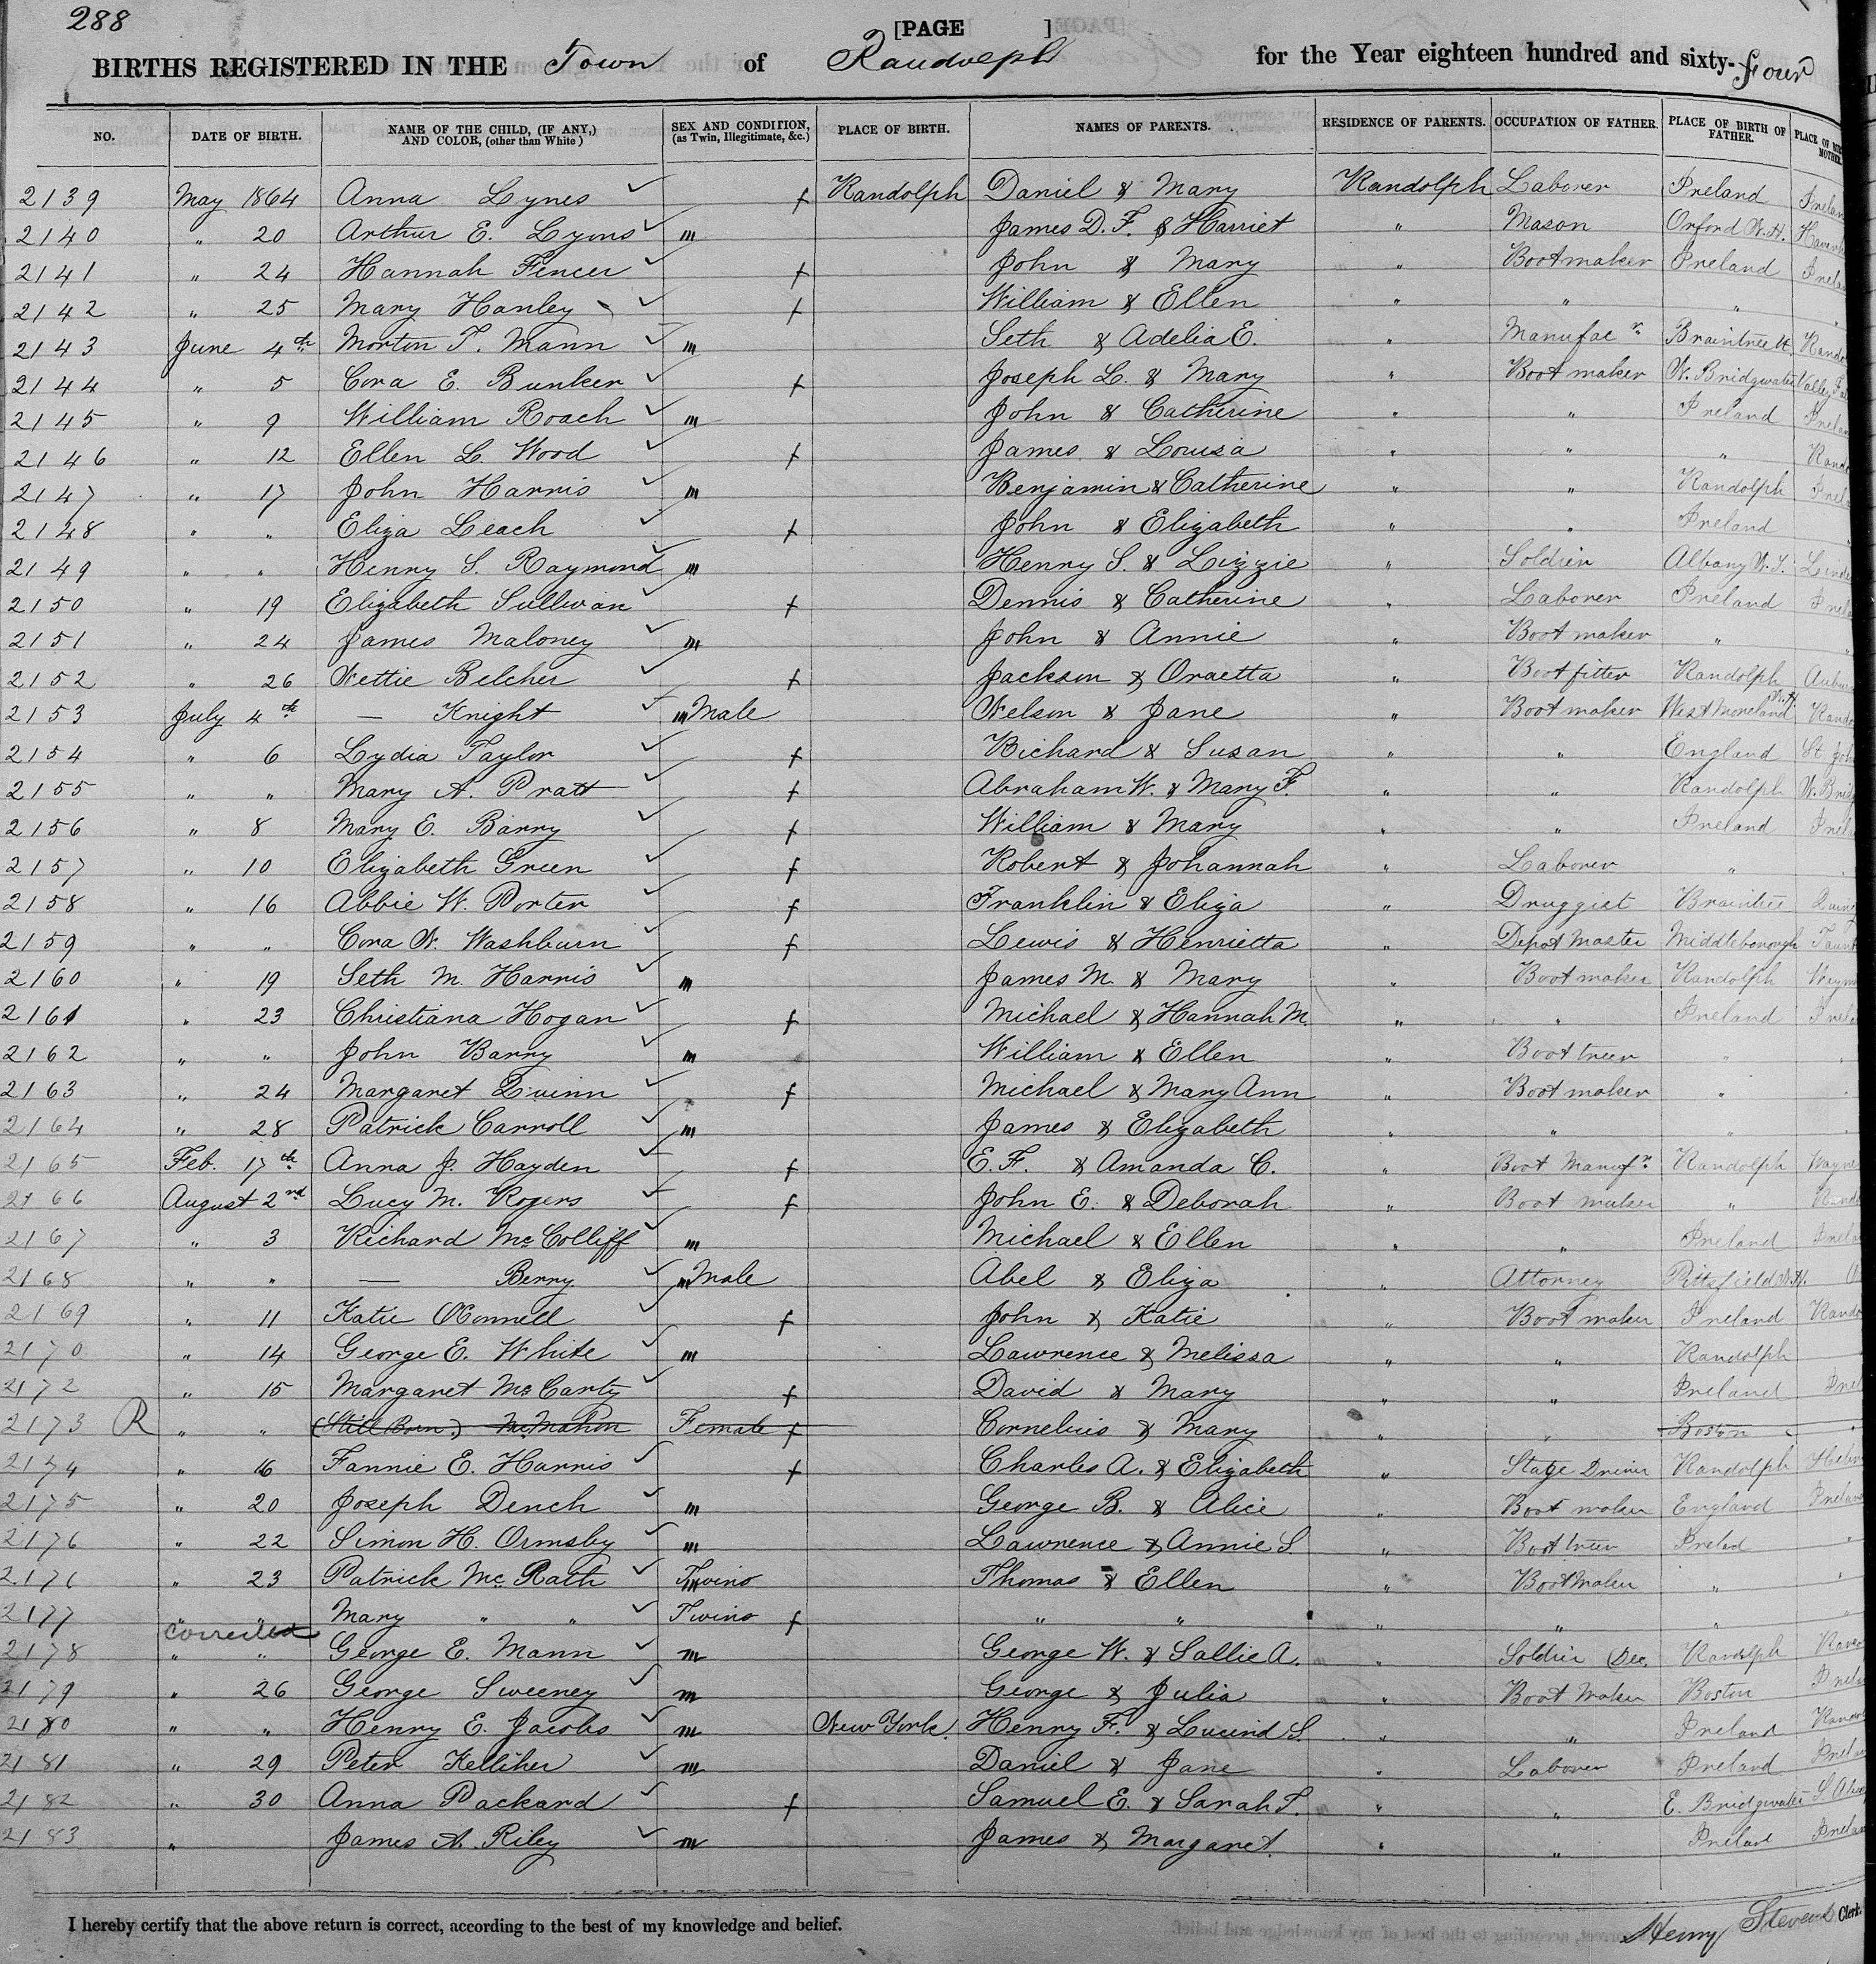 288
[PAGE ]
BIRTHS REGISTERED IN THE Town of Randolph for the Year eighteen hundred and sixty-Four
NO. DATE OF BIRTH. NAME OF THE CHILD, (IF ANY,) AND COLOR, (other than White) SEX AND CONDITION, (as Twin, Illegitimate, &c.) PLACE OF BIRTH. NAMES OF PARENTS. RESIDENCE OF PARENTS. OCCUPATION OF FATHER. PLACE OF BIRTH OF FATHER. PLACE OF MOTHER.
2139 May 1864 Anna Lynes f Randolph Daniel & Mary Randolph Laborer Ireland
2140 " 20 Arthur E. Lyons m James D. F. & Harriet " Mason Orford N.H.
2141 " 24 Hannah Fencer f John & Mary " Bootmaker Ireland
2142 " 25 Mary Hanley f William & Ellen " " "
2143 June 4th Morton T. Mann m Seth & Adelia E. " Manufacr Braintree
2144 " 5 Cora E. Bunker f Joseph L. & Mary " Boot maker W. Bridgwater
2145 " 9 William Roach m John & Catherine " " Ireland
2146 " 12 Ellen L. Wood f James & Louisa " " "
2147 " 17 John Harris m Benjamin & Catherine " " Randolph
2148 " " Eliza Leach f John & Elizabeth " " Ireland
2149 " " Henry S. Raymond m Henry S. & Lizzie " Soldier Albany N.Y.
2150 " 19 Elizabeth Sullivan f Dennis & Catherine " Laborer Ireland
2151 " 24 James Maloney m John & Annie " Boot maker "
2152 " 26 Nettie Belcher f Jackson & Oraetta " Boot fitter Randolph
2153 July 4th — Knight m Male Nelson & Jane " Boot maker West Moreland N.H.
2154 " 6 Lydia Taylor f Richard & Susan " " England
2155 " " Mary A. Pratt f Abraham W. & Mary F. " " Randolph
2156 " 8 Mary E. Barry f William & Mary " " Ireland
2157 " 10 Elizabeth Green f Robert & Johannah " Laborer "
2158 " 16 Abbie W. Porter f Franklin & Eliza " Druggist Braintree
2159 " " Cora N. Washburn f Lewis & Henrietta " Depot Master Middleborough
2160 " 19 Seth M. Harris m James M. & Mary " Boot maker Randolph
2161 " 23 Christiana Hogan f Michael & Hannah M. " " Ireland
2162 " " John Barry m William & Ellen " Boot treer "
2163 " 24 Margaret Quinn f Michael & Mary Ann " Boot maker "
2164 " 28 Patrick Carroll m James & Elizabeth " " "
2165 Feb. 17th Anna J. Hayden f E. F. & Amanda C. " Boot Manufr Randolph
2166 August 2nd Lucy M. Rogers f John E. & Deborah " Boot maker "
2167 " 3 Richard McColliff m Michael & Ellen " " Ireland
2168 " " — Berry m Male Abel & Eliza " Attorney Pittsfield N.H.
2169 " 11 Katie OConnell f John & Katie " Boot maker Ireland
2170 " 14 George E. White m Lawrence & Melissa " " Randolph
2172 " 15 Margaret McCarty f David & Mary " " Ireland
2173 R " " (Still Born.) McMahon Female f Cornelius & Mary " " Boston
2174 " 16 Fannie E. Harris f Charles A. & Elizabeth " Stage Driver Randolph
2175 " 20 Joseph Dench m George B. & Alice " Boot maker England
2176 " 22 Simon H. Ormsby m Lawrence & Annie S. " Boot treer Ireland
2176 " 23 Patrick McRath m Twins Thomas & Ellen " Boot Maker "
2177 " " Mary " " Twins f " " " " "
corrected
2178 " " George E. Mann m George W. & Sallie A. " Soldier Dec. Randolph
2179 " 26 George Sweeney m George & Julia " Boot Maker Boston
2180 " " Henry E. Jacobs m New York. Henry F. & Lucind S. " " Ireland
2181 " 29 Peter Kelliher m Daniel & Jane " Laborer Ireland
2182 " 30 Anna Packard f Samuel E. & Sarah T. " " E. Bridgwater
2183 " James A. Riley m James & Margaret. " " Ireland
I hereby certify that the above return is correct, according to the best of my knowledge and belief.
Henry Stevens Clerk.